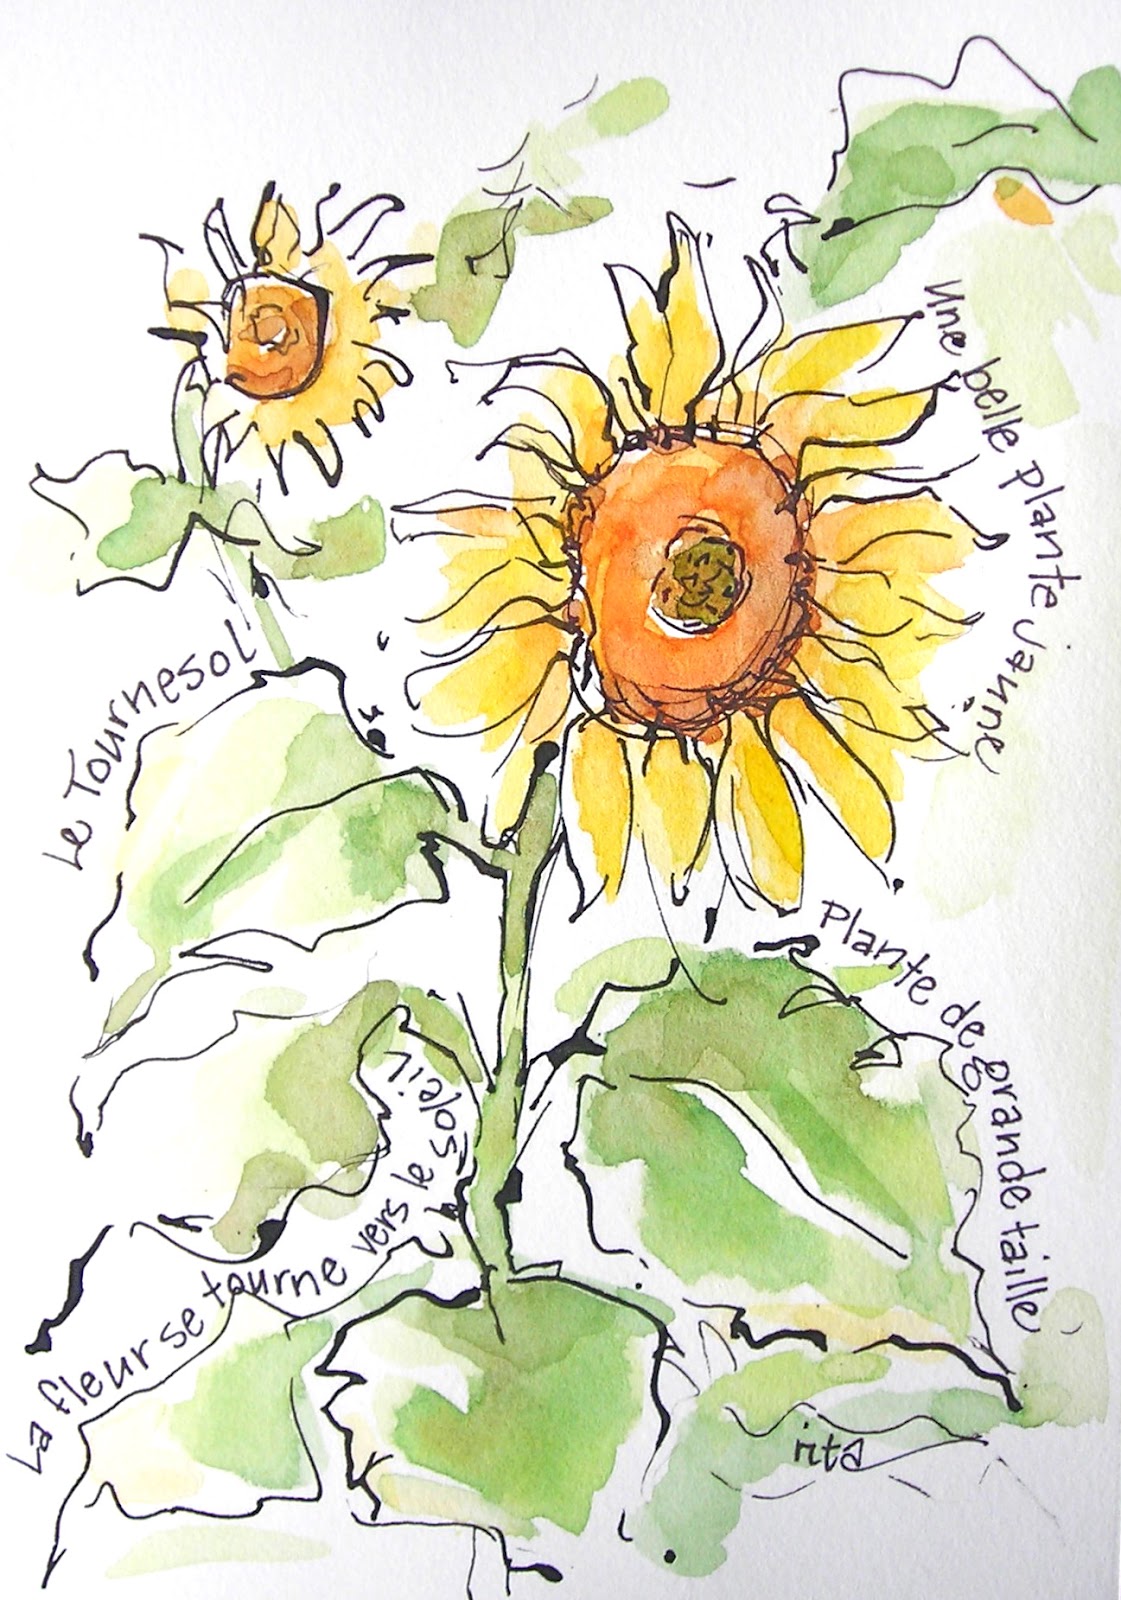 Une belle plante jaune
Le Tournesol
Plante de grande taille
La fleur se tourne vers le soleil
rita